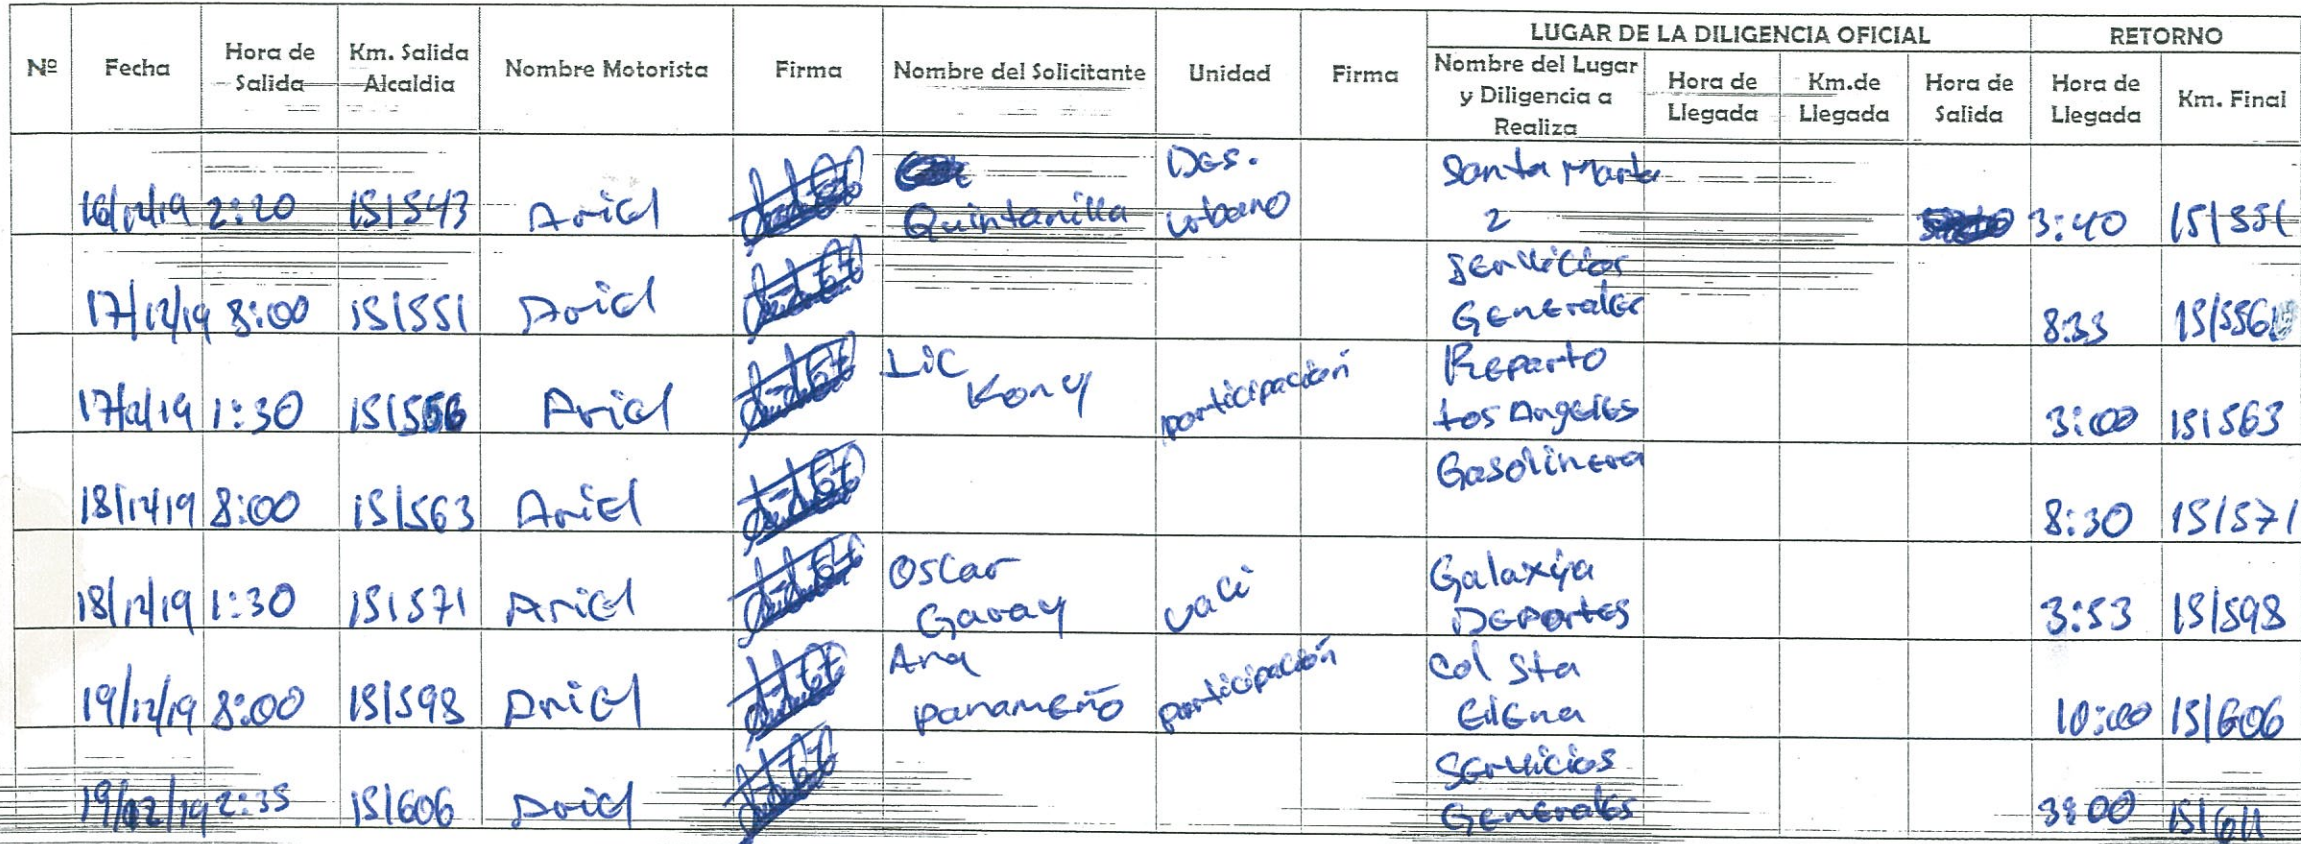 LUGAR DE LA DILIGENCIA OFICIAL RETORNO
Nº Fecha Hora de Salida Km. Salida Alcaldia Nombre Motorista Firma Nombre del Solicitante Unidad Firma Nombre del Lugar y Diligencia a Realiza Hora de Llegada Km.de Llegada Hora de Salida Hora de Llegada Km. Final
16/12/19 2:20 151543 Ariel Quintanilla Des. urbano Santa Marta 2 3:40 151551
17/12/19 8:00 151551 Ariel Servicios Generales 8:33 151556
17/12/19 1:30 151556 Ariel Lic Kony participación Reparto Los Angeles 3:00 151563
18/12/19 8:00 151563 Ariel Gasolinera 8:30 151571
18/12/19 1:30 151571 Ariel Oscar Garay uaci Galaxya Deportes 3:53 151598
19/12/19 8:00 151598 Ariel Ana panameño participación Col Sta Elena 10:00 151606
19/12/19 2:35 151606 Ariel Servicios Generales 3:00 151611